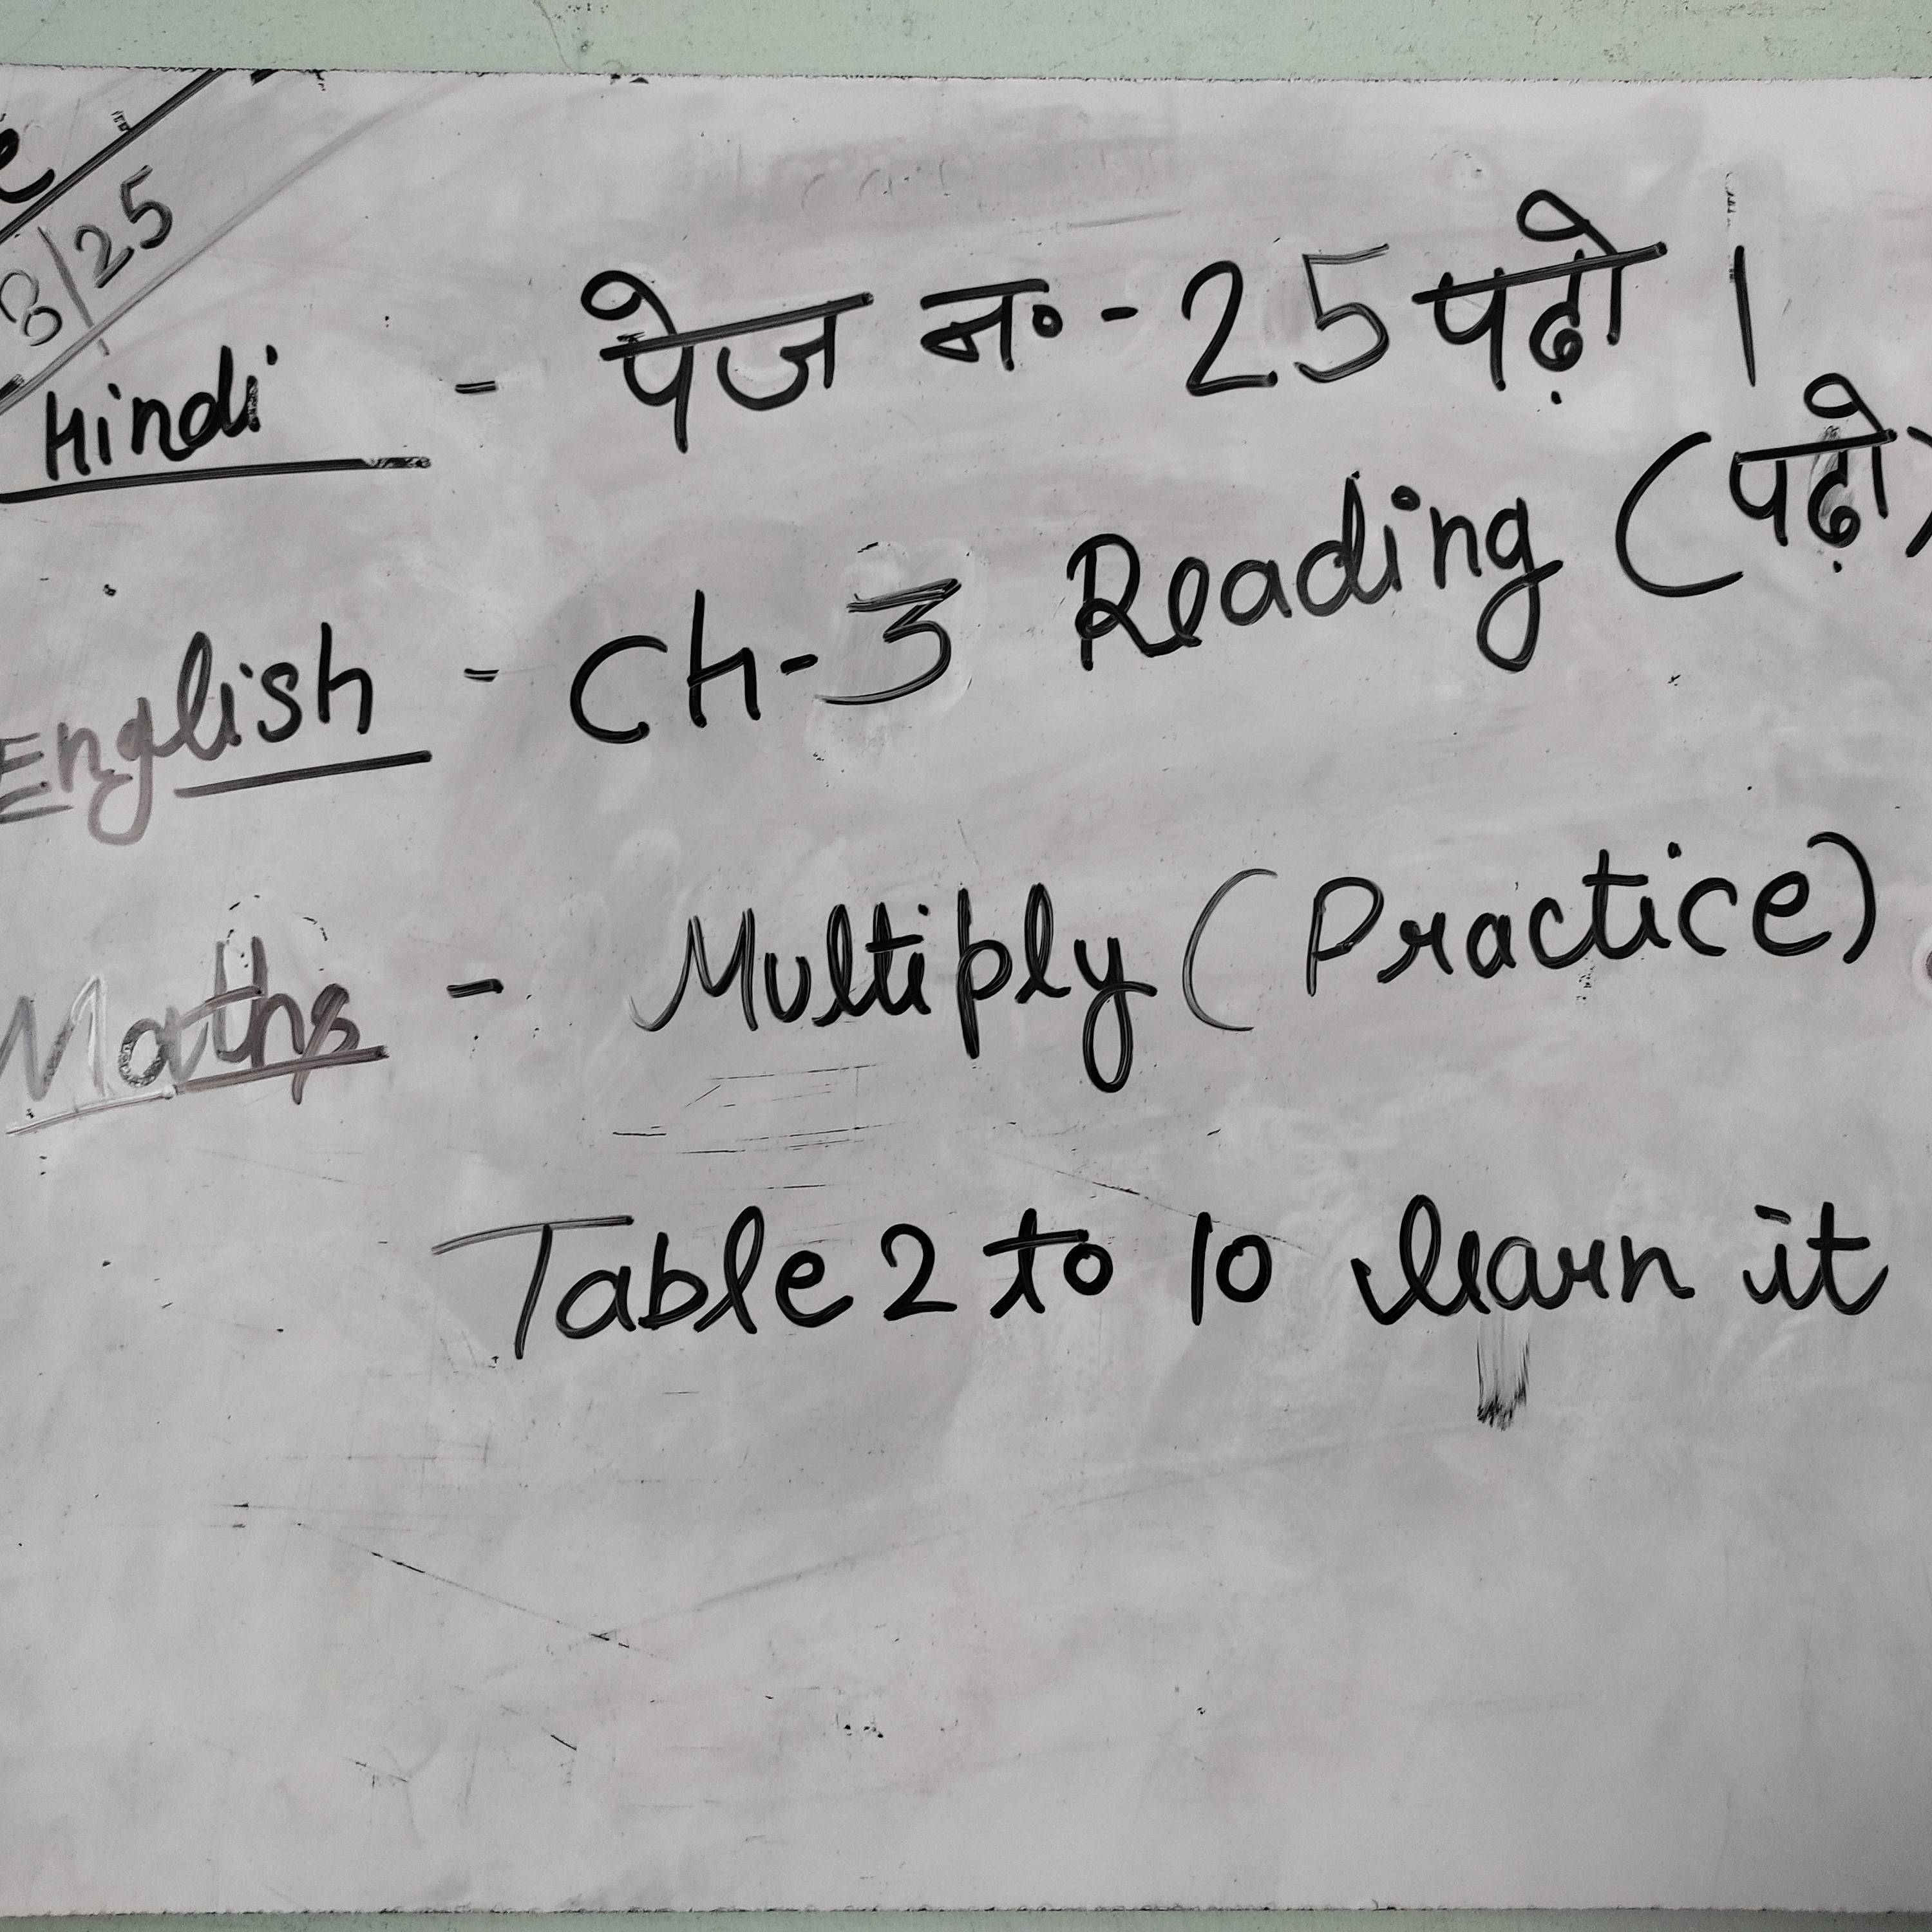 8/25
Hindi - पेज न॰ - 25 पढ़ो ।
English - Ch-3 Reading (पढ़ो)
Maths - Multiply (Practice)
Table 2 to 10 learn it